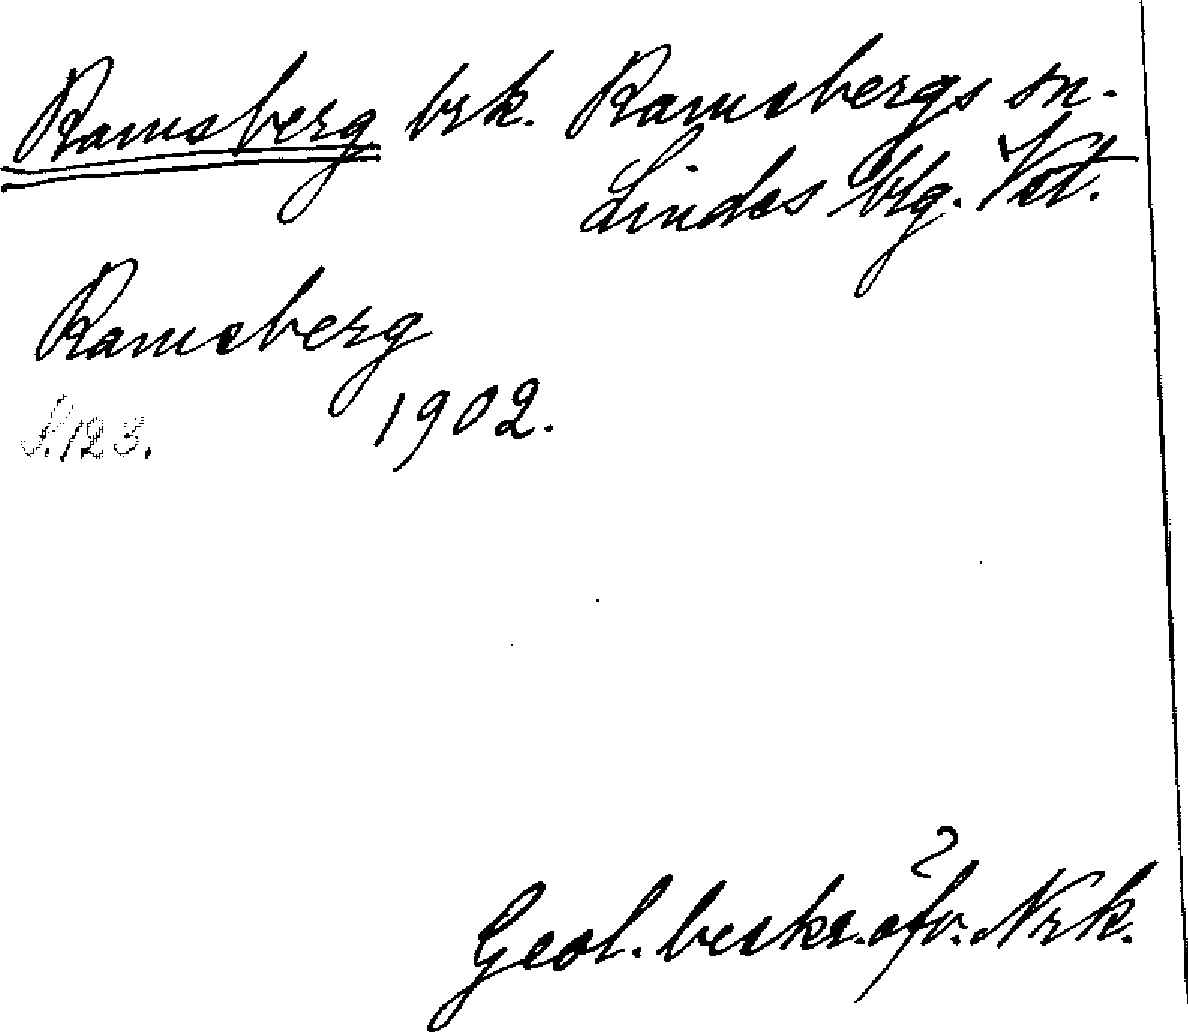 Ramsberg brk. Ramsbergs sn.
Lindes blg. Vstt.
Ramsberg
1902.
S. 123.
Geol. beskr. öfv. Nrk.